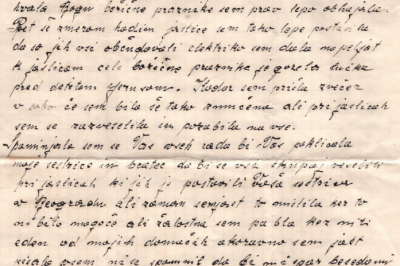 hvala Bogu božične praznike sem prav lepo obhajala.
Pet še zmerom hodim jaslice sem tako lepe postavila
da so jih vsi občudovali elektriko sem dala napeljat
k jaslicam cele božične praznike je gorela lučka
pred detetom Jezusom. Kodar sem prišla zvečer
v sobo če sem bila še tako zmučena ali pri jaslicah
sem se razveselila in pozabila na vse.
Spominjala sem se Vas vseh rada bi Vas poklicala
moje sestrice in bratec da bi se vsi skupaj veselili
pri jaslicah ki jih je postavili Vaša sestrica
v Beogradu ali zaman semjast to mislila ker to
ni bilo mogoče ali žalostna sem pa bla ker ni
eden od mojih domačih akoravno sem jast
pisala vsem ni se spomnil da bi mi spar besedami